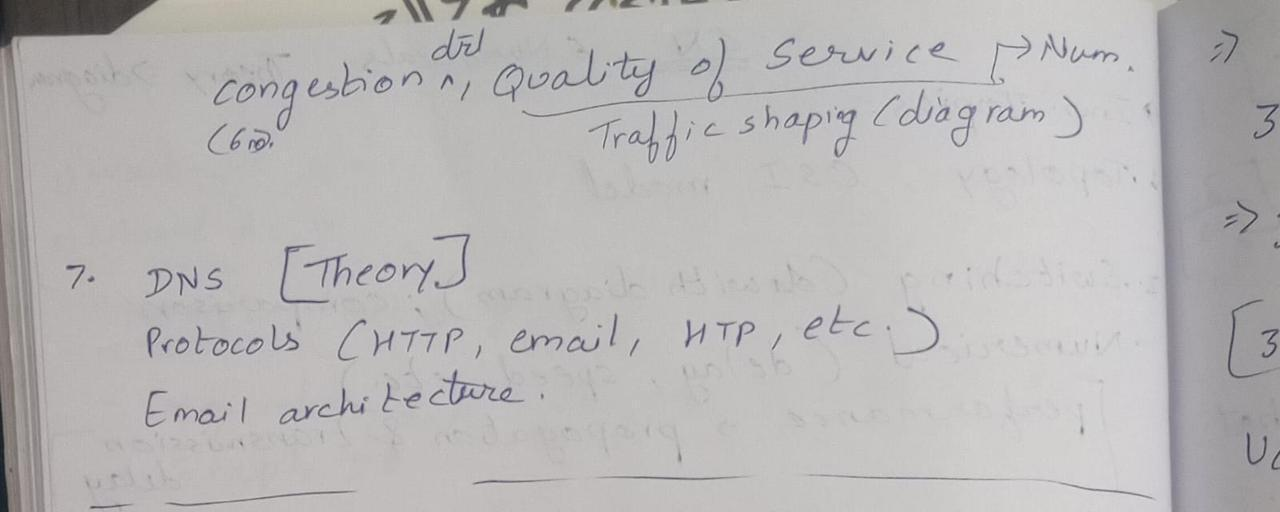 Congestion ^, Quality of Service → Num.
Traffic shaping (diagram)
7. DNS [Theory]
Protocols (HTTP, email, HTP, etc.)
Email architecture.
=>
3
=>
[3